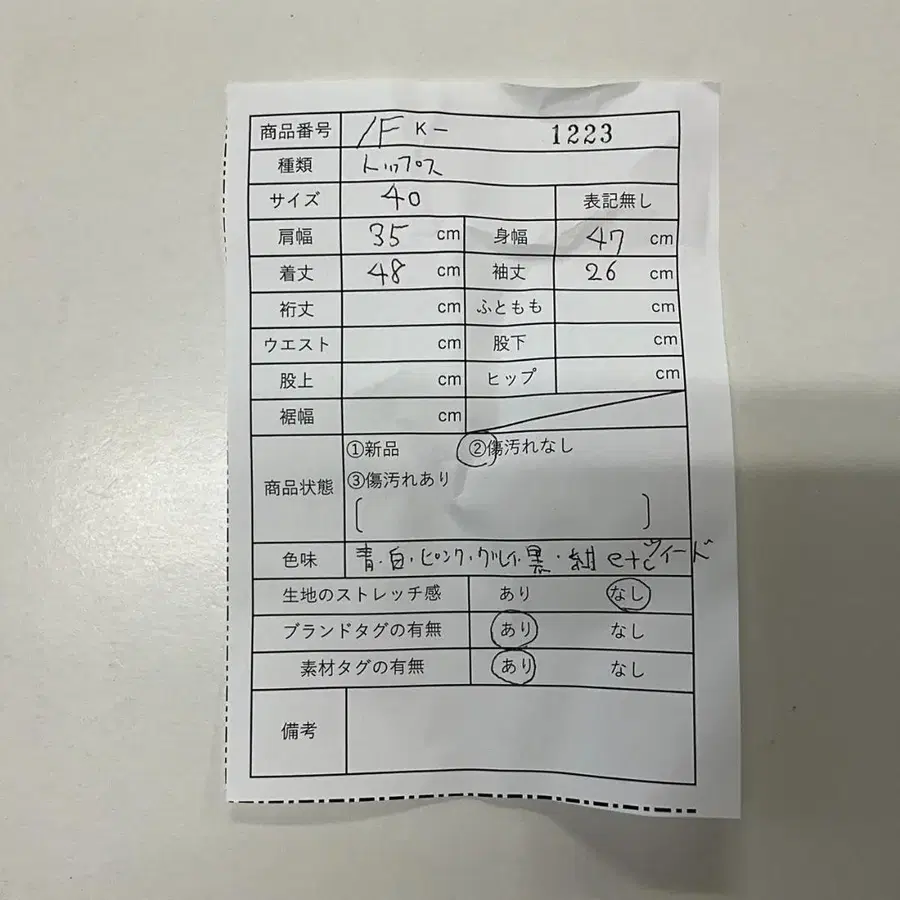 商品番号 /F K- 1223
種類 トップス
サイズ 40 表記無し
肩幅 35 cm 身幅 47 cm
着丈 48 cm 袖丈 26 cm
裄丈 cm ふともも cm
ウエスト cm 股下 cm
股上 cm ヒップ cm
裾幅 cm
商品状態 ①新品 ②傷汚れなし
③傷汚れあり
[ ]
色味 青・白・ピンク・グレイ・黒・紺 etc ツイード
生地のストレッチ感 あり なし
ブランドタグの有無 あり なし
素材タグの有無 あり なし
備考